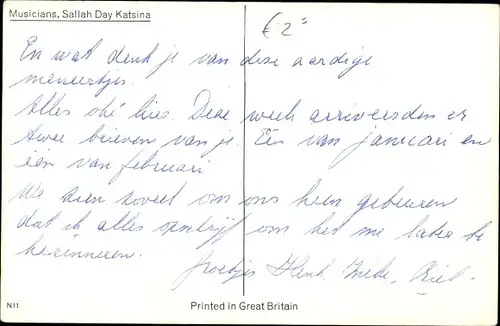 Musicians, Sallah Day Katsina
€ 2=
En wat denk je van deze aardige
meneertjes.
Alles oké hier. Deze week arriveerden er
twee brieven van je. Een van januari en
één van februari
We zien zoveel om ons heen gebeuren
dat ik alles opschrijf om het me later te
herinneren.
Groetjes Henk, Mieke,
N11
Printed in Great Britain